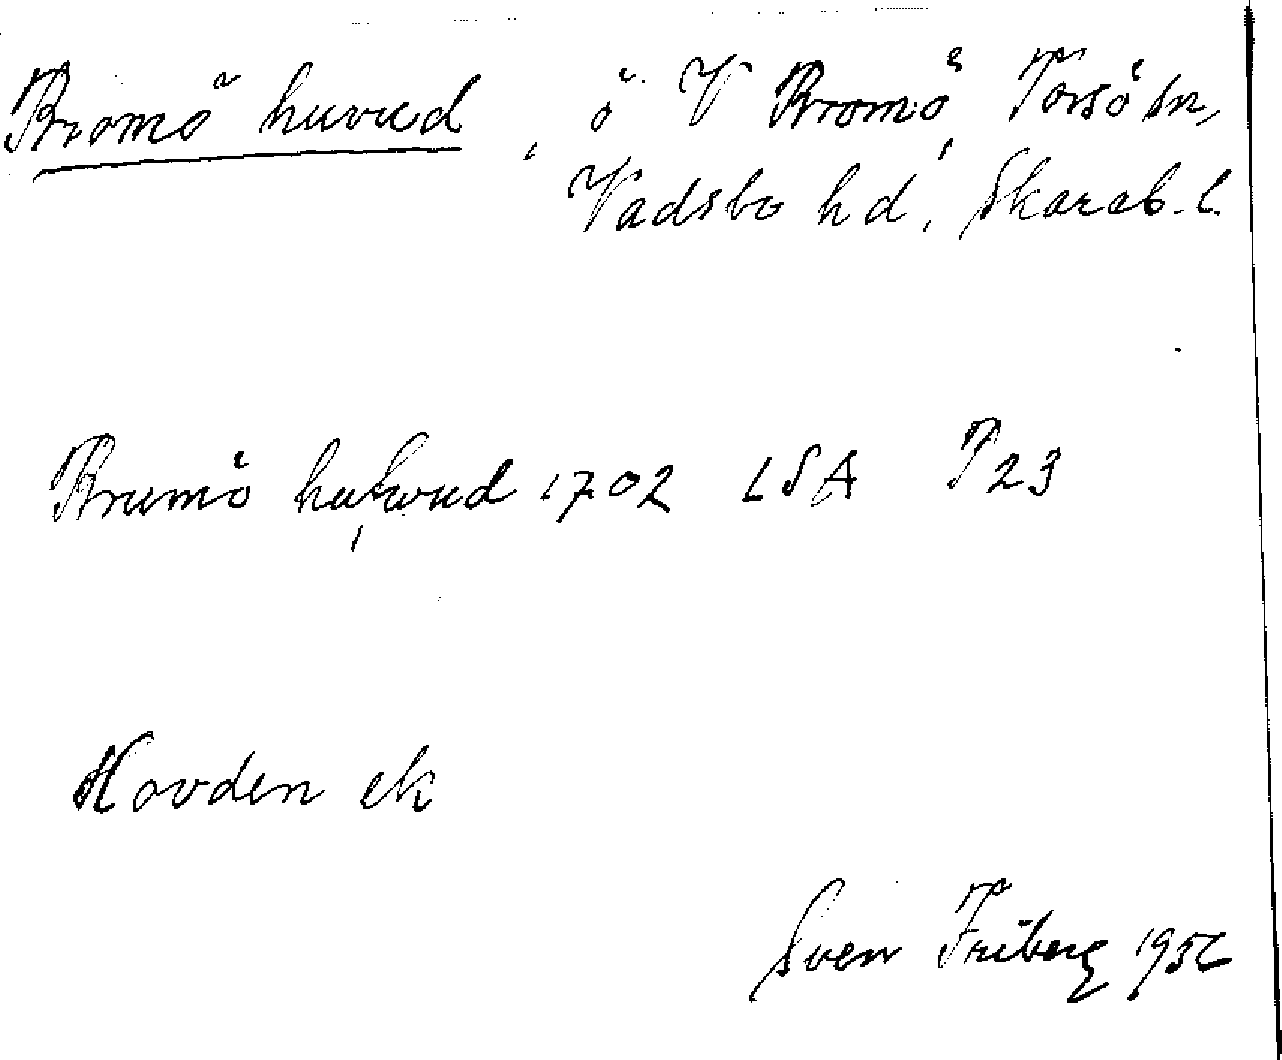 Bromö huvud, ö V Bromö, Torsö sn,
Vadsbo hd, Skarab. l.
Brumö hufwud 1702 LSA P23
Hovden ek
Sven Friberg